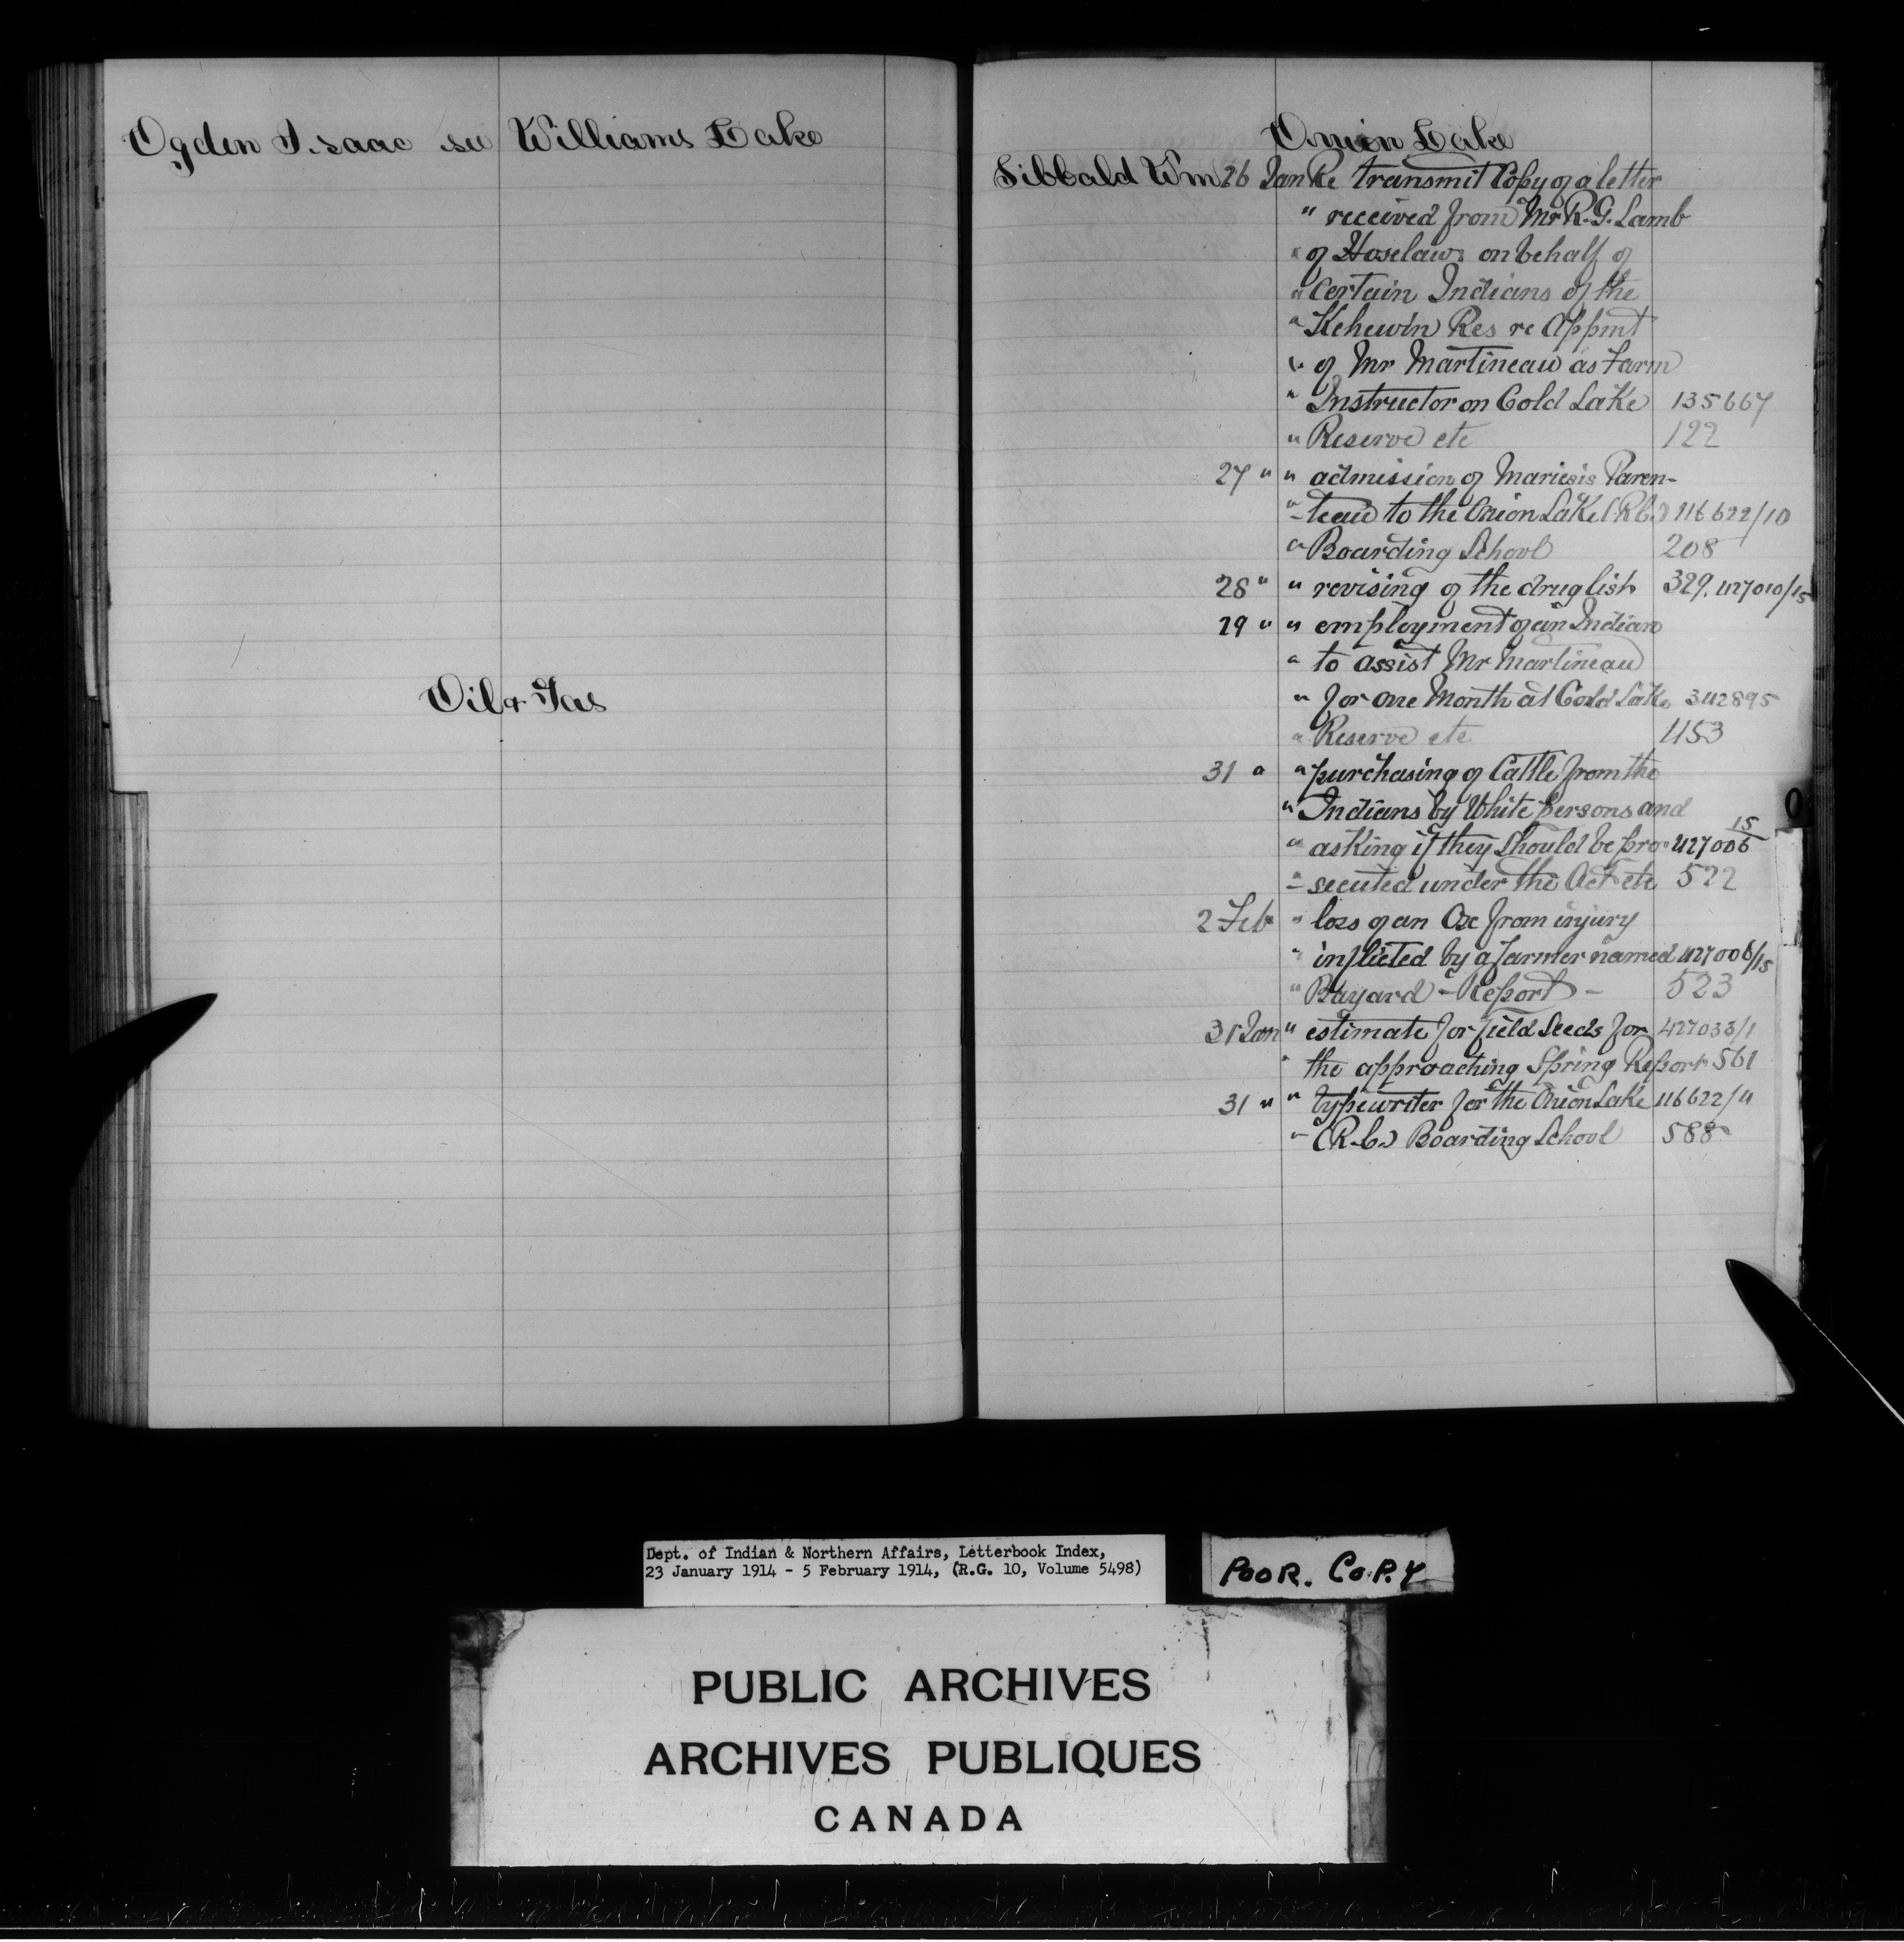 Ogden Isaac see Williams Lake
Oil & Gas
Onion Lake
Sibbald Wm 26 Jan Re transmit Copy of a letter
" received from Mr R. G. Lamb
" of Hoselaw on behalf of
" certain Indians of the
" Kehewin Res re Appmt
" of Mr Martineau as Farm
" Instructor on Cold Lake 135667
" Reserve etc 122
27 " " admission of Mariesis Paren-
" -teau to the Onion Lake (R.C.) 116622/10
" Boarding School 208
28 " " revising of the drug list 329. 427010/15
29 " " employment of an Indian
" to assist Mr Martineau
" for one Month at Cold Lake 342895
" Reserve etc 453
31 " " purchasing of Cattle from the
" Indians by White persons and
" asking if they should be pro- 427006/15
" - secuted under the Act etc 522
2 Feb " loss of an Ox from injury
" inflicted by a farmer named 427006/15
" Bayard - Report - 523
31 Jan " estimate for field Seeds for 427033/1
" the approaching Spring Report 561
31 " " typewriter for the Onion Lake 116622/4
" (R.C.) Boarding School 588
O
Dept. of Indian & Northern Affairs, Letterbook Index,
23 January 1914 - 5 February 1914, (R.G. 10, Volume 5498)
POOR. COPY
PUBLIC ARCHIVES
ARCHIVES PUBLIQUES
CANADA